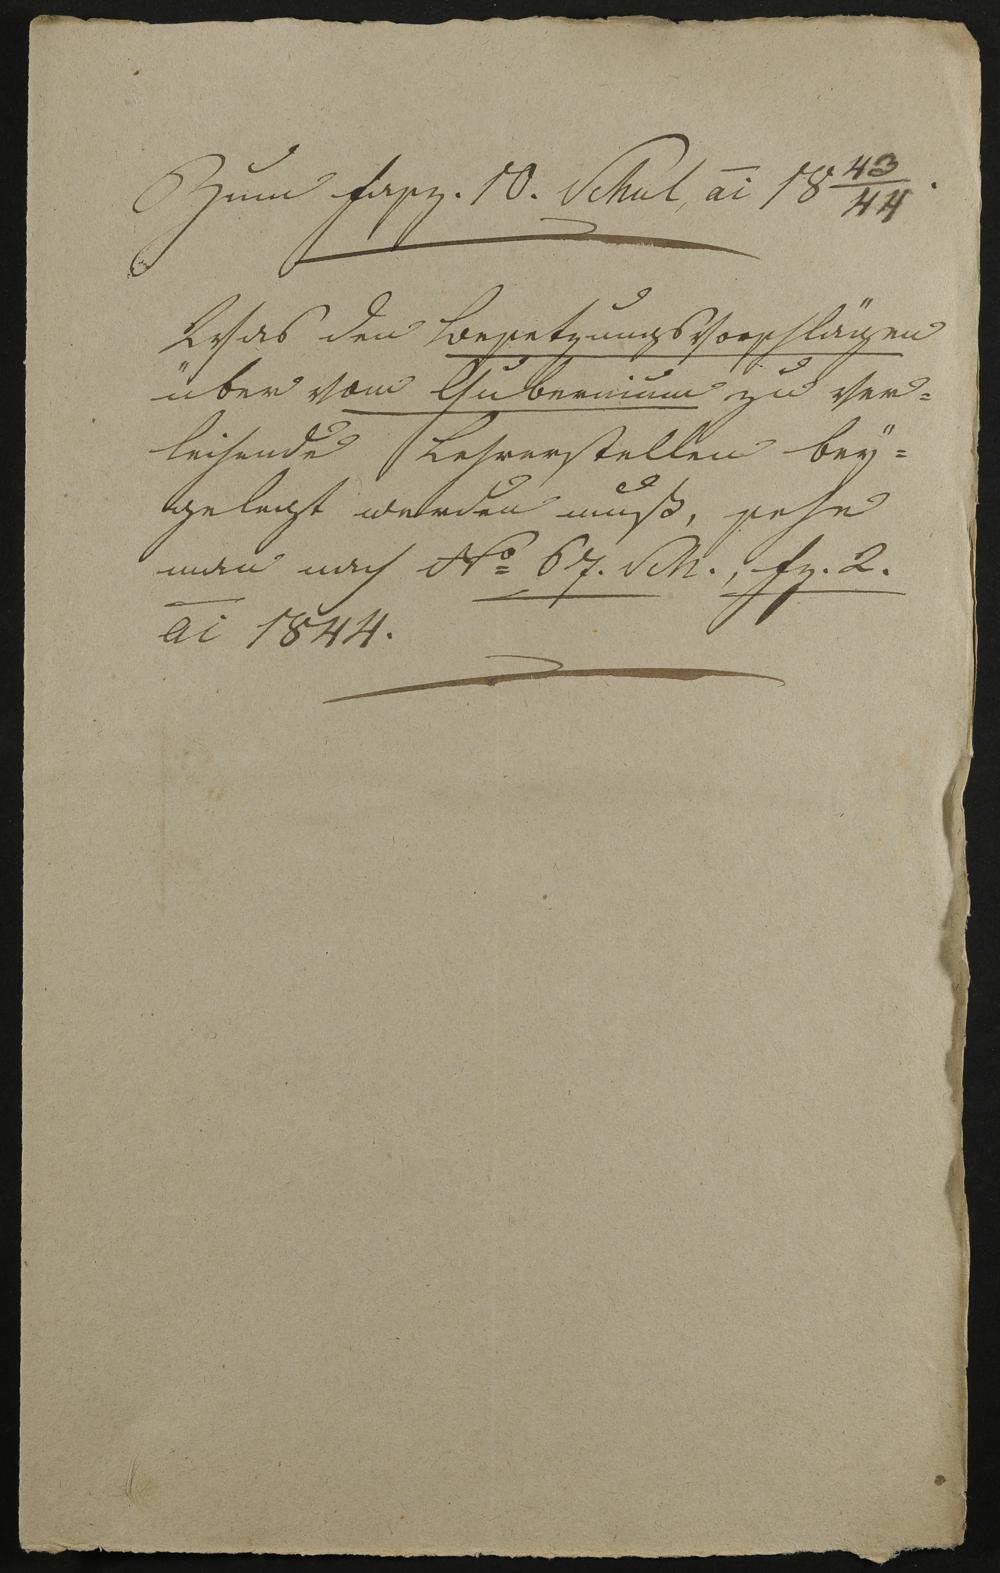 Zum fasz. 10. Schul, ai 18 43/44.
Was den Besetzungsvorschlägen
über vom Gubernium zu ver=
leihende Lehrerstellen bey=
gelegt werden muß, sehe
man nach No 67. Sch., fz. 2.
ai 1844.